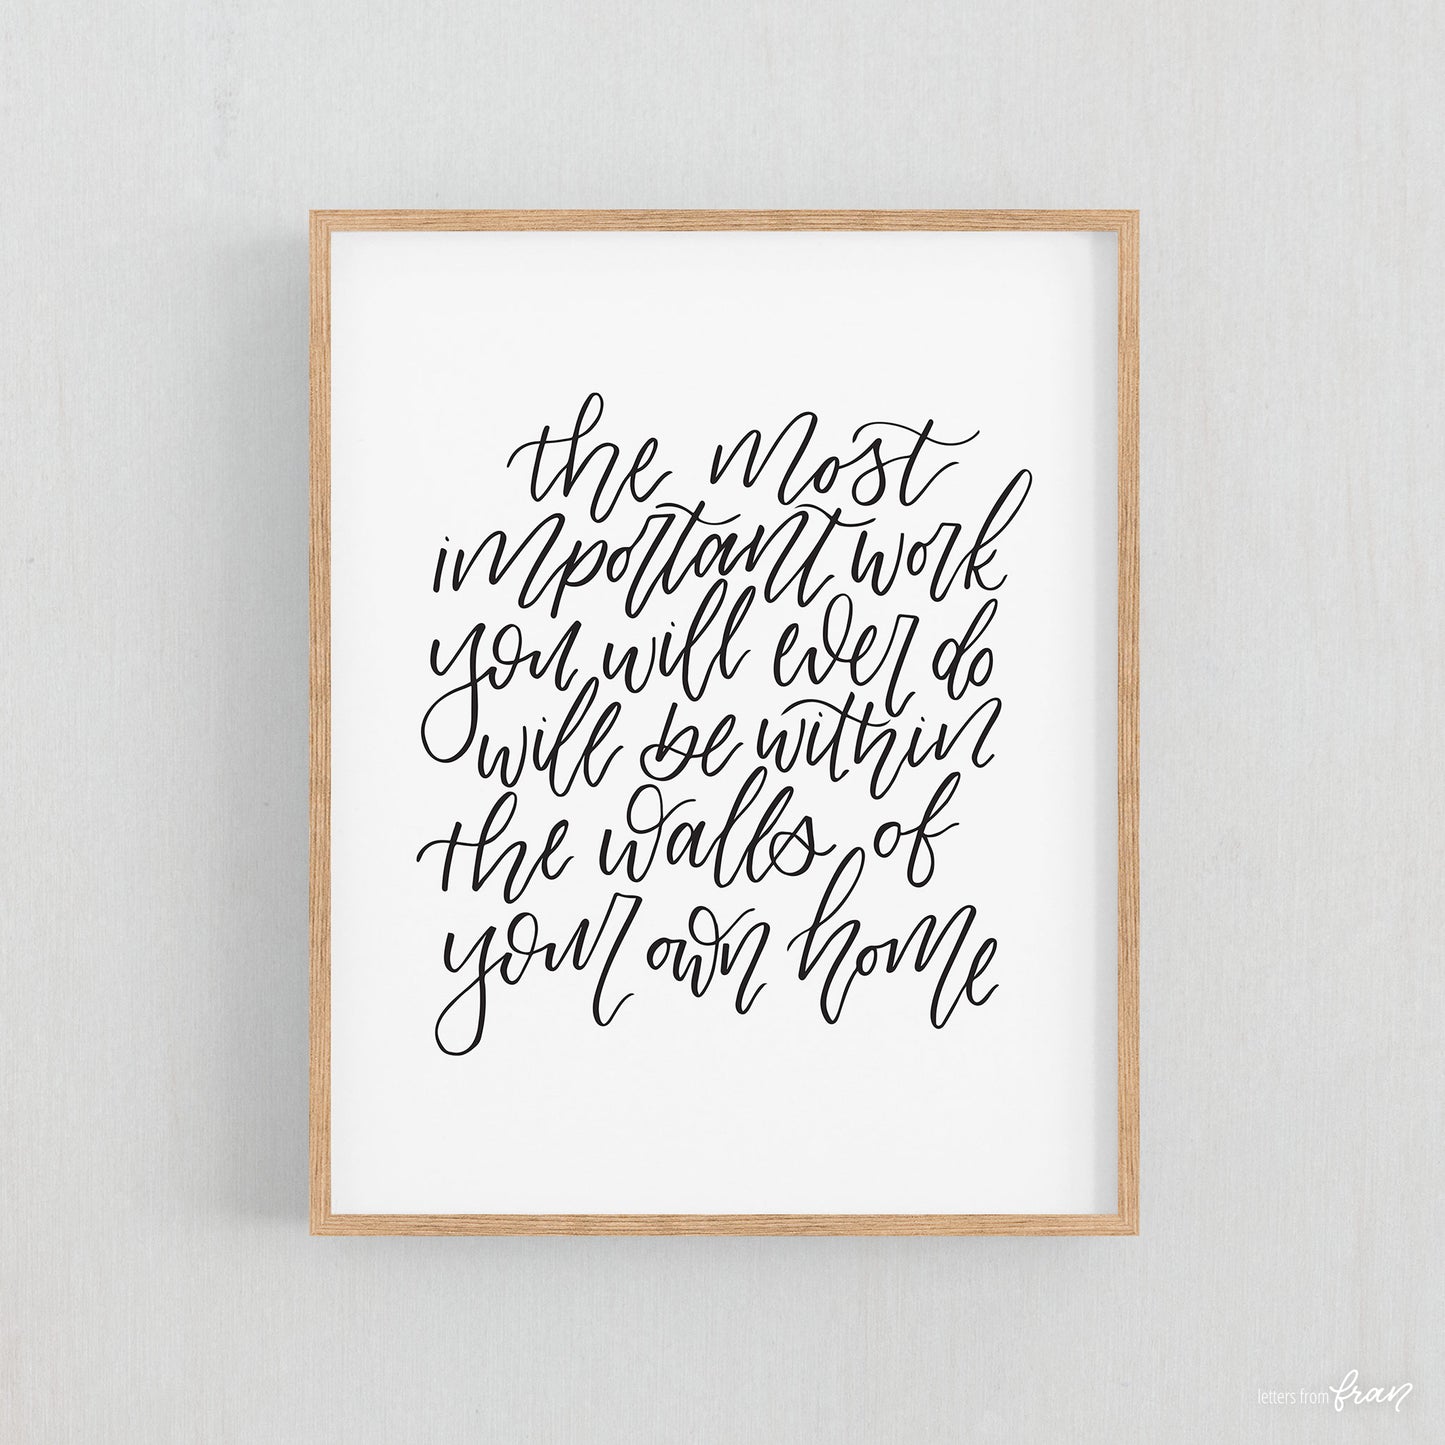 the most
important work
you will ever do
will be within
the walls of
your own home
letters from fran